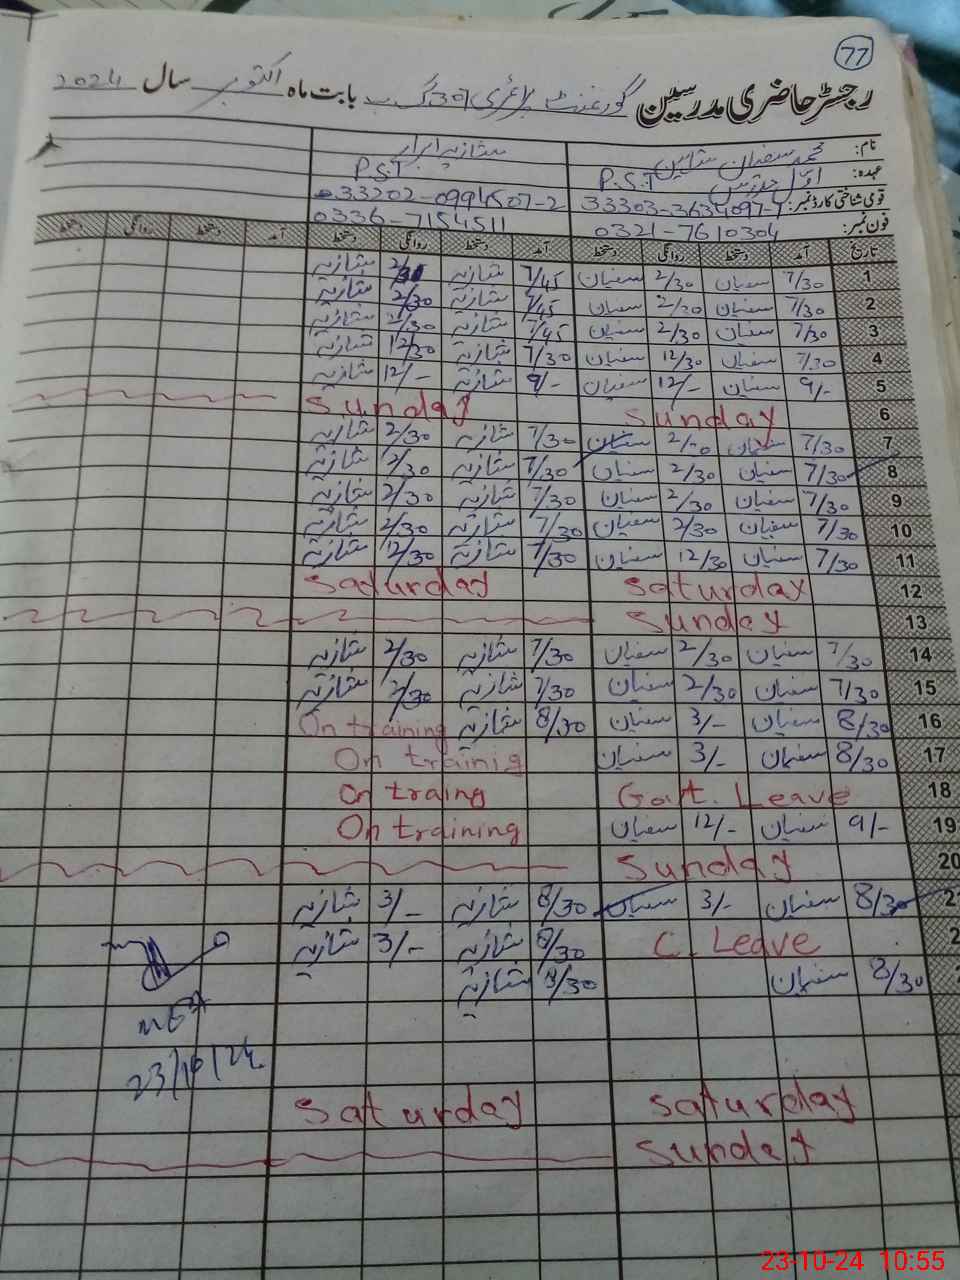 77
رجسٹر حاضری مدرسین گورنمنٹ پرائمری 301 گ ب بابت ماہ اکتوبر سال 2024
نام: محمد سفیان شازیہ ابرار
عہدہ: P.S.T P.S.T
قومی شناختی کارڈ نمبر: 33202-0991507-2
فون نمبر: 0321-7610304 0336-7154511
تاریخ آمد دستخط روانگی دستخط آمد دستخط روانگی دستخط آمد دستخط روانگی دستخط
1 7/30 سفیان 2/30 سفیان 7/45 شازیہ شازیہ
2 7/30 سفیان 2/30 سفیان 7/45 شازیہ 2/30 شازیہ
3 7/30 سفیان 2/30 سفیان 7/45 شازیہ 2/30 شازیہ
4 7/30 سفیان 12/30 سفیان 7/30 شازیہ 12/30 شازیہ
5 9/- سفیان 12/- سفیان 9/- شازیہ 12/- شازیہ
6 Sunday Sunday
7 7/30 سفیان 2/30 سفیان 7/30 شازیہ 2/30 شازیہ
8 7/30 سفیان 2/30 سفیان 7/30 شازیہ 2/30 شازیہ
9 7/30 سفیان 2/30 سفیان 7/30 شازیہ 2/30 شازیہ
10 7/30 سفیان 2/30 سفیان 7/30 شازیہ 2/30 شازیہ
11 7/30 سفیان 12/30 سفیان 7/30 شازیہ 12/30 شازیہ
12 Saturday Saturday
13 Sunday
14 7/30 سفیان 2/30 سفیان 7/30 شازیہ 2/30 شازیہ
15 7/30 سفیان 2/30 سفیان 7/30 شازیہ 2/30 شازیہ
16 8/30 سفیان 3/- سفیان 8/30 شازیہ On training
17 8/30 سفیان 3/- سفیان On trainig
18 Govt. Leave On traing
19 9/- سفیان 12/- سفیان On training
20 Sunday
2 8/30 سفیان 3/- سفیان 8/30 شازیہ 3/- شازیہ
2 C. Leave 8/30 شازیہ 3/- شازیہ
8/30 سفیان 8/30 شازیہ
23/10/24
Saturday Saturday
Sunday
23-10-24 10:55